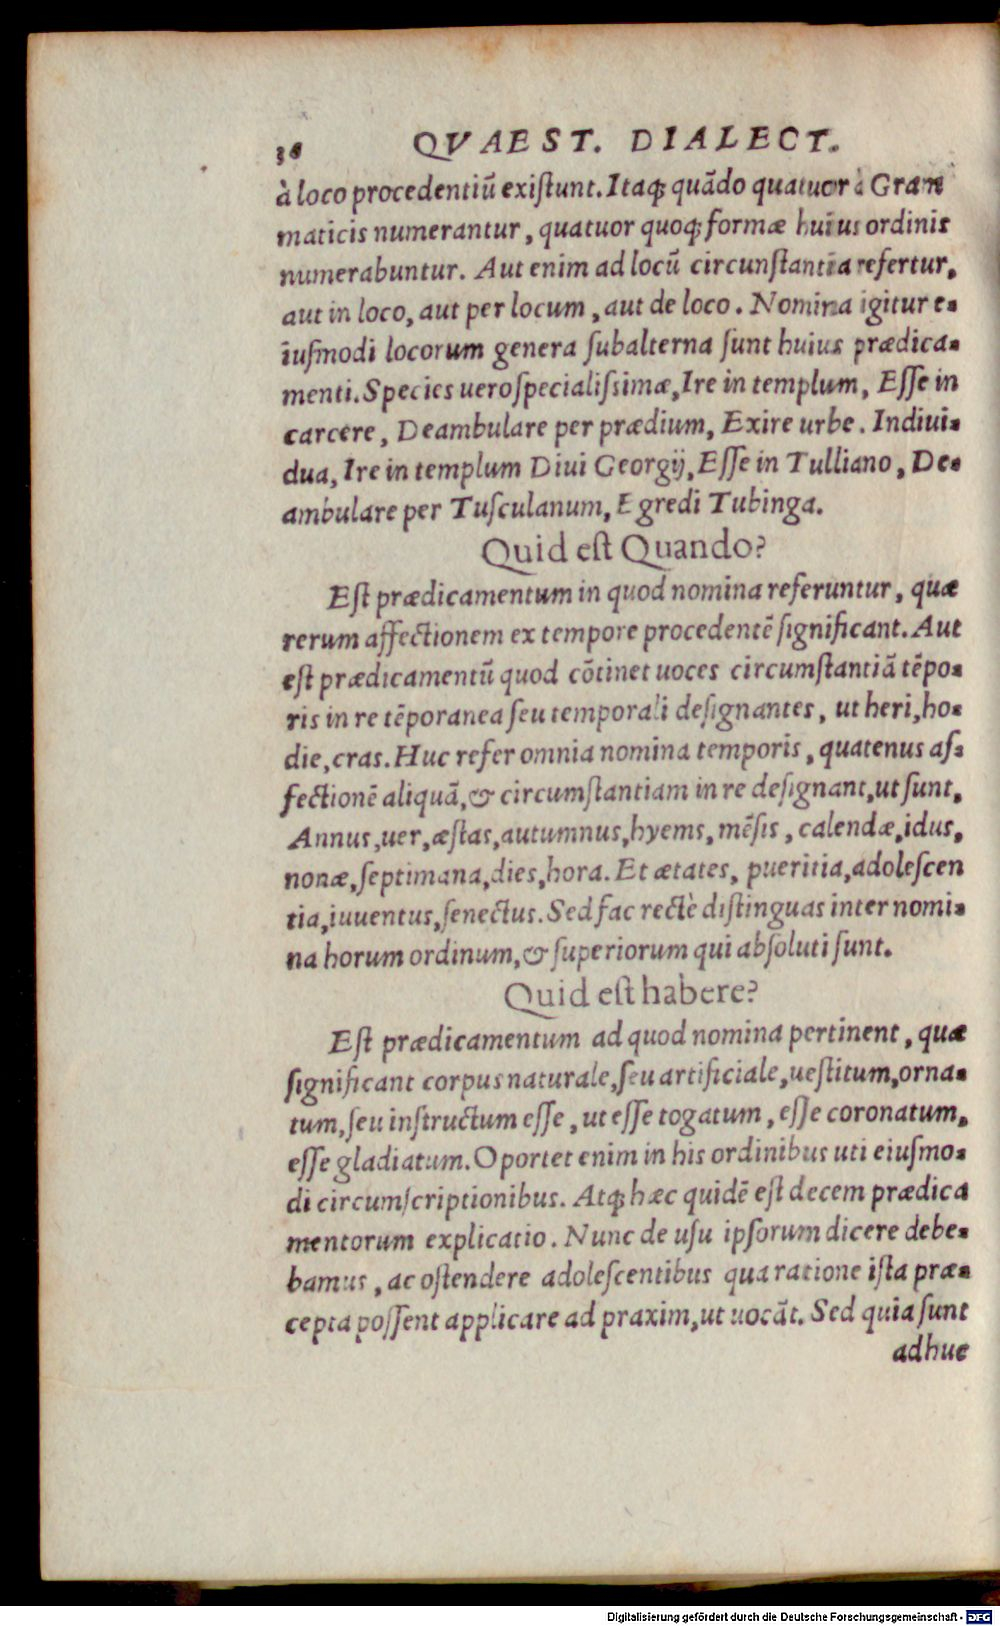 36 QVAEST. DIALECT.
à loco procedentiũ exiſtunt. Itaq; quãdo quatuor à Gram
maticis numerantur, quatuor quoq; formæ huius ordinis
numerabuntur. Aut enim ad locũ circunſtantia refertur,
aut in loco, aut per locum, aut de loco. Nomina igitur e-
iuſmodi locorum genera ſubalterna ſunt huius prædica-
menti. Species uero ſpecialiſsimæ, Ire in templum, Eſſe in
carcere, Deambulare per prædium, Exire urbe. Indiui-
dua, Ire in templum Diui Georgij, Eſſe in Tulliano, De-
ambulare per Tuſculanum, Egredi Tubinga.
Quid eſt Quando?
Eſt prædicamentum in quod nomina referuntur, quæ
rerum affectionem ex tempore procedentẽ ſignificant. Aut
eſt prædicamentũ quod cõtinet uoces circumſtantiã tẽpo-
ris in re tẽporanea ſeu temporali deſignantes, ut heri, ho-
die, cras. Huc refer omnia nomina temporis, quatenus af-
fectionẽ aliquã, & circumſtantiam in re deſignant, ut ſunt,
Annus, uer, æſtas, autumnus, hyems, mẽſis, calendæ, idus,
nonæ, ſeptimana, dies, hora. Et ætates, pueritia, adoleſcen
tia, iuuentus, ſenectus. Sed fac rectè diſtinguas inter nomi-
na horum ordinum, & ſuperiorum qui abſoluti ſunt.
Quid eſt habere?
Eſt prædicamentum ad quod nomina pertinent, quæ
ſignificant corpus naturale, ſeu artificiale, ueſtitum, orna-
tum, ſeu inſtructum eſſe, ut eſſe togatum, eſſe coronatum,
eſſe gladiatum. Oportet enim in his ordinibus uti eiuſmo-
di circumſcriptionibus. Atq; hæc quidẽ eſt decem prædica
mentorum explicatio. Nunc de uſu ipſorum dicere debe-
bamus, ac oſtendere adoleſcentibus qua ratione iſta præ-
cepta poſſent applicare ad praxim, ut uocãt. Sed quia ſunt
adhuc
Digitalisierung gefördert durch die Deutsche Forschungsgemeinschaft - DFG